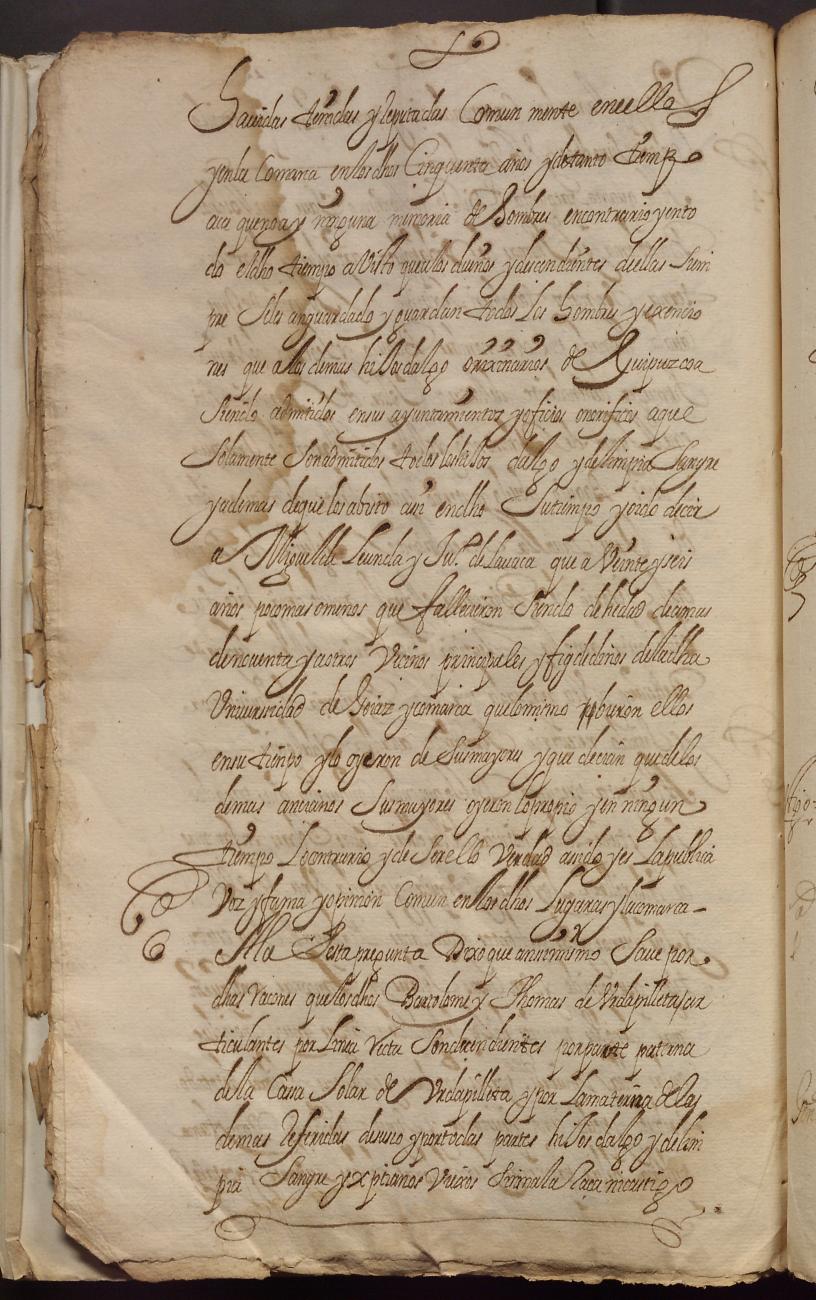 Savidas tenidas y Reputadas Comun mente en ellas
y en la Comarca en los dhos Cinquenta años y de tanto tiempo
aca que no ay ninguna memoria de hombres en contrario y en to
do el dho tiempo a Visto que a los dueños y descendientes de ellas siem
pre se les an guardado y guardan todos los honrres y exencio
nes que a los demas hijos dalgo orixinarios de Guipuzcoa
siendo admitidos en sus ayuntamientos y oficios onorificos a que
Solamente son admitidos todos los hijos dalgo y de limpia Sangre
y ademas de que los a visto asi en el dho Su tiempo y oido decir
a Miguel de Leunda y Ju.º de Lavaca que a Veinte y seis
años poco mas o menos que fallecieron siendo de hedad de a mas
de ncuenta y a otros Vicinos principales y figdedinos de la dha
Universidad de Goiaz y comarca que lo mismo ellos
en su tiempo y lo oyeron de sus mayores y que decian que de los
demas ancianos Sus mayores oyeron lo propio y en ningun
tiempo Lo contrario y de Ser ello Verdad a sido y es La publica
Voz y fama y opinion Comun en los dhos Lugares y su comarca -
6 A la Sesta pregunta Dixo que ansi mismo Save por
dhas racones que los dhos Bartolome y Thomas de Urdapilleta ar
ticulantes por Linia recta Son decindientes por parte paterna
de la Cassa Solar de Urdapilleta y por La materna de las
demas Referidas de suso y por todas partes hijos dalgo y de lin
pia Sangre y xptianos Viexos Sin mala Raça ni castigo